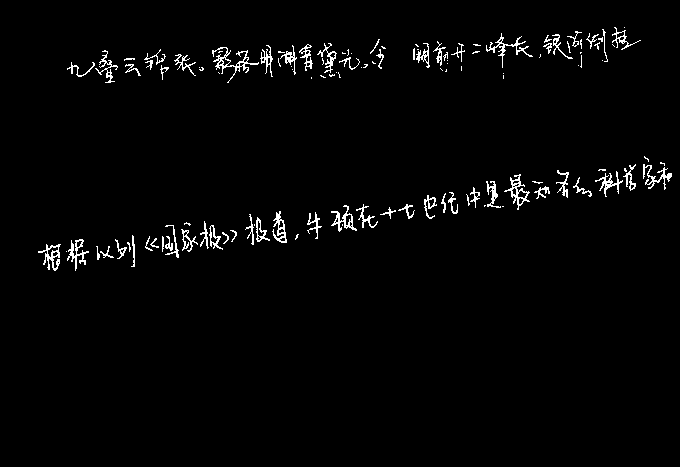 九叠云锦张。影落明湖青黛光,金 阙前开二峰长,银河倒挂
根据以列《国家报》报道,牛顿在十七世纪中是最知名的科学家和